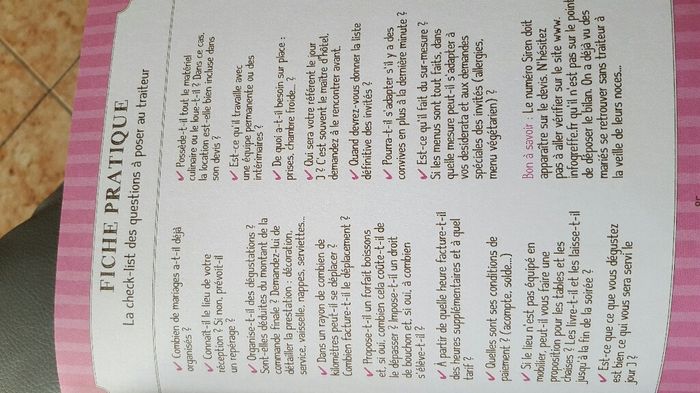 FICHE PRATIQUE
La check-list des questions à poser au traiteur
✓ Combien de mariages a-t-il déjà
organisés ?
✓ Connaît-il le lieu de votre
réception ? Si non, prévoit-il
un repérage ?
✓ Organise-t-il des dégustations ?
Sont-elles déduites du montant de la
commande finale ? Demandez-lui de
détailler la prestation : décoration,
service, vaisselle, nappes, serviettes...
✓ Dans un rayon de combien de
kilomètres peut-il se déplacer ?
Combien facture-t-il le déplacement ?
✓ Propose-t-il un forfait boissons
et, si oui, combien cela coûte-t-il de
le dépasser ? Impose-t-il un droit
de bouchon et, si oui, à combien
s'élève-t-il ?
✓ A partir de quelle heure facture-t-il
des heures supplémentaires et à quel
tarif ?
✓ Quelles sont ses conditions de
paiement ? (acompte, solde...)
✓ Si le lieu n'est pas équipé en
mobilier, peut-il vous faire une
proposition pour les tables et les
chaises ? Les livre-t-il et les laisse-t-il
jusqu'à la fin de la soirée ?
✓ Est-ce que ce que vous dégustez
est bien ce qui vous sera servi le
jour J ?
✓ Possède-t-il tout le matériel
culinaire ou le loue-t-il ? Dans ce cas,
la location est-elle bien incluse dans
son devis ?
✓ Est-ce qu'il travaille avec
une équipe permanente ou des
intérimaires ?
✓ De quoi a-t-il besoin sur place :
prises, chambre froide... ?
✓ Qui sera votre référent le jour
J ? C'est souvent le maître d'hôtel,
demandez à le rencontrer avant.
✓ Quand devrez-vous donner la liste
définitive des invités ?
✓ Pourra-t-il s'adapter s'il y a des
convives en plus à la dernière minute ?
✓ Est-ce qu'il fait du sur-mesure ?
Si les menus sont tout faits, dans
quelle mesure peut-il s'adapter à
vos desiderata et aux demandes
spéciales des invités (allergies,
menu végétarien) ?
Bon à savoir : Le numéro Siren doit
apparaître sur le devis. N'hésitez
pas à aller vérifier sur le site www.
infogreffe.fr qu'il n'est pas sur le point
de déposer le bilan. On a déjà vu des
mariés se retrouver sans traiteur à
la veille de leurs noces...